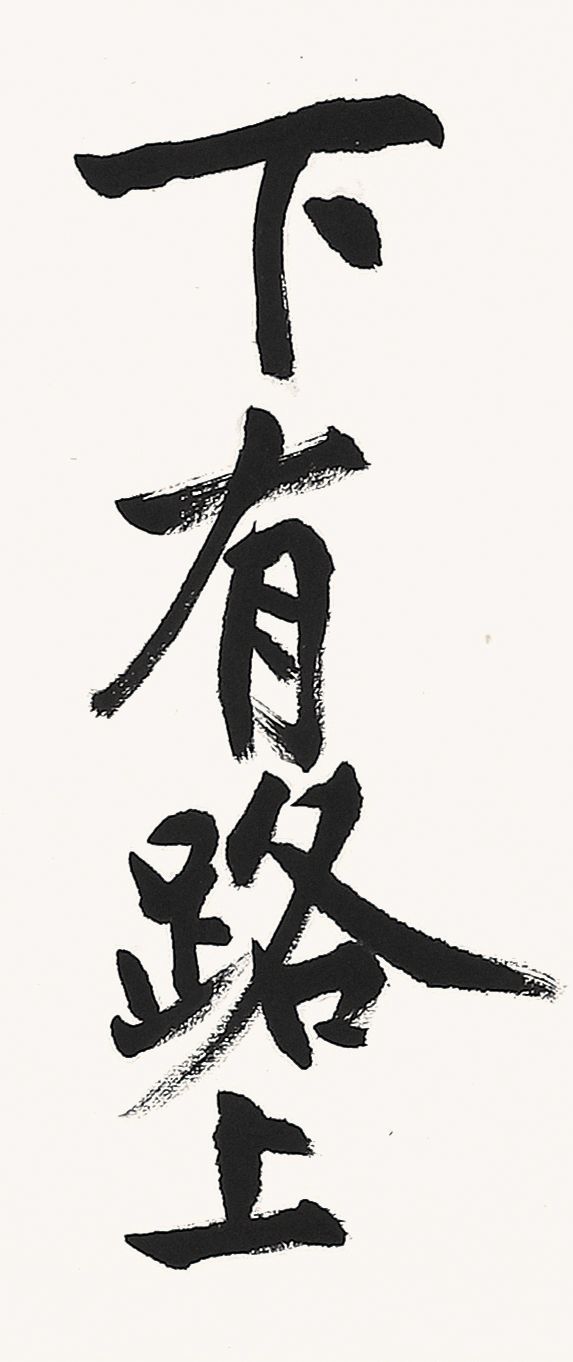 下有路上